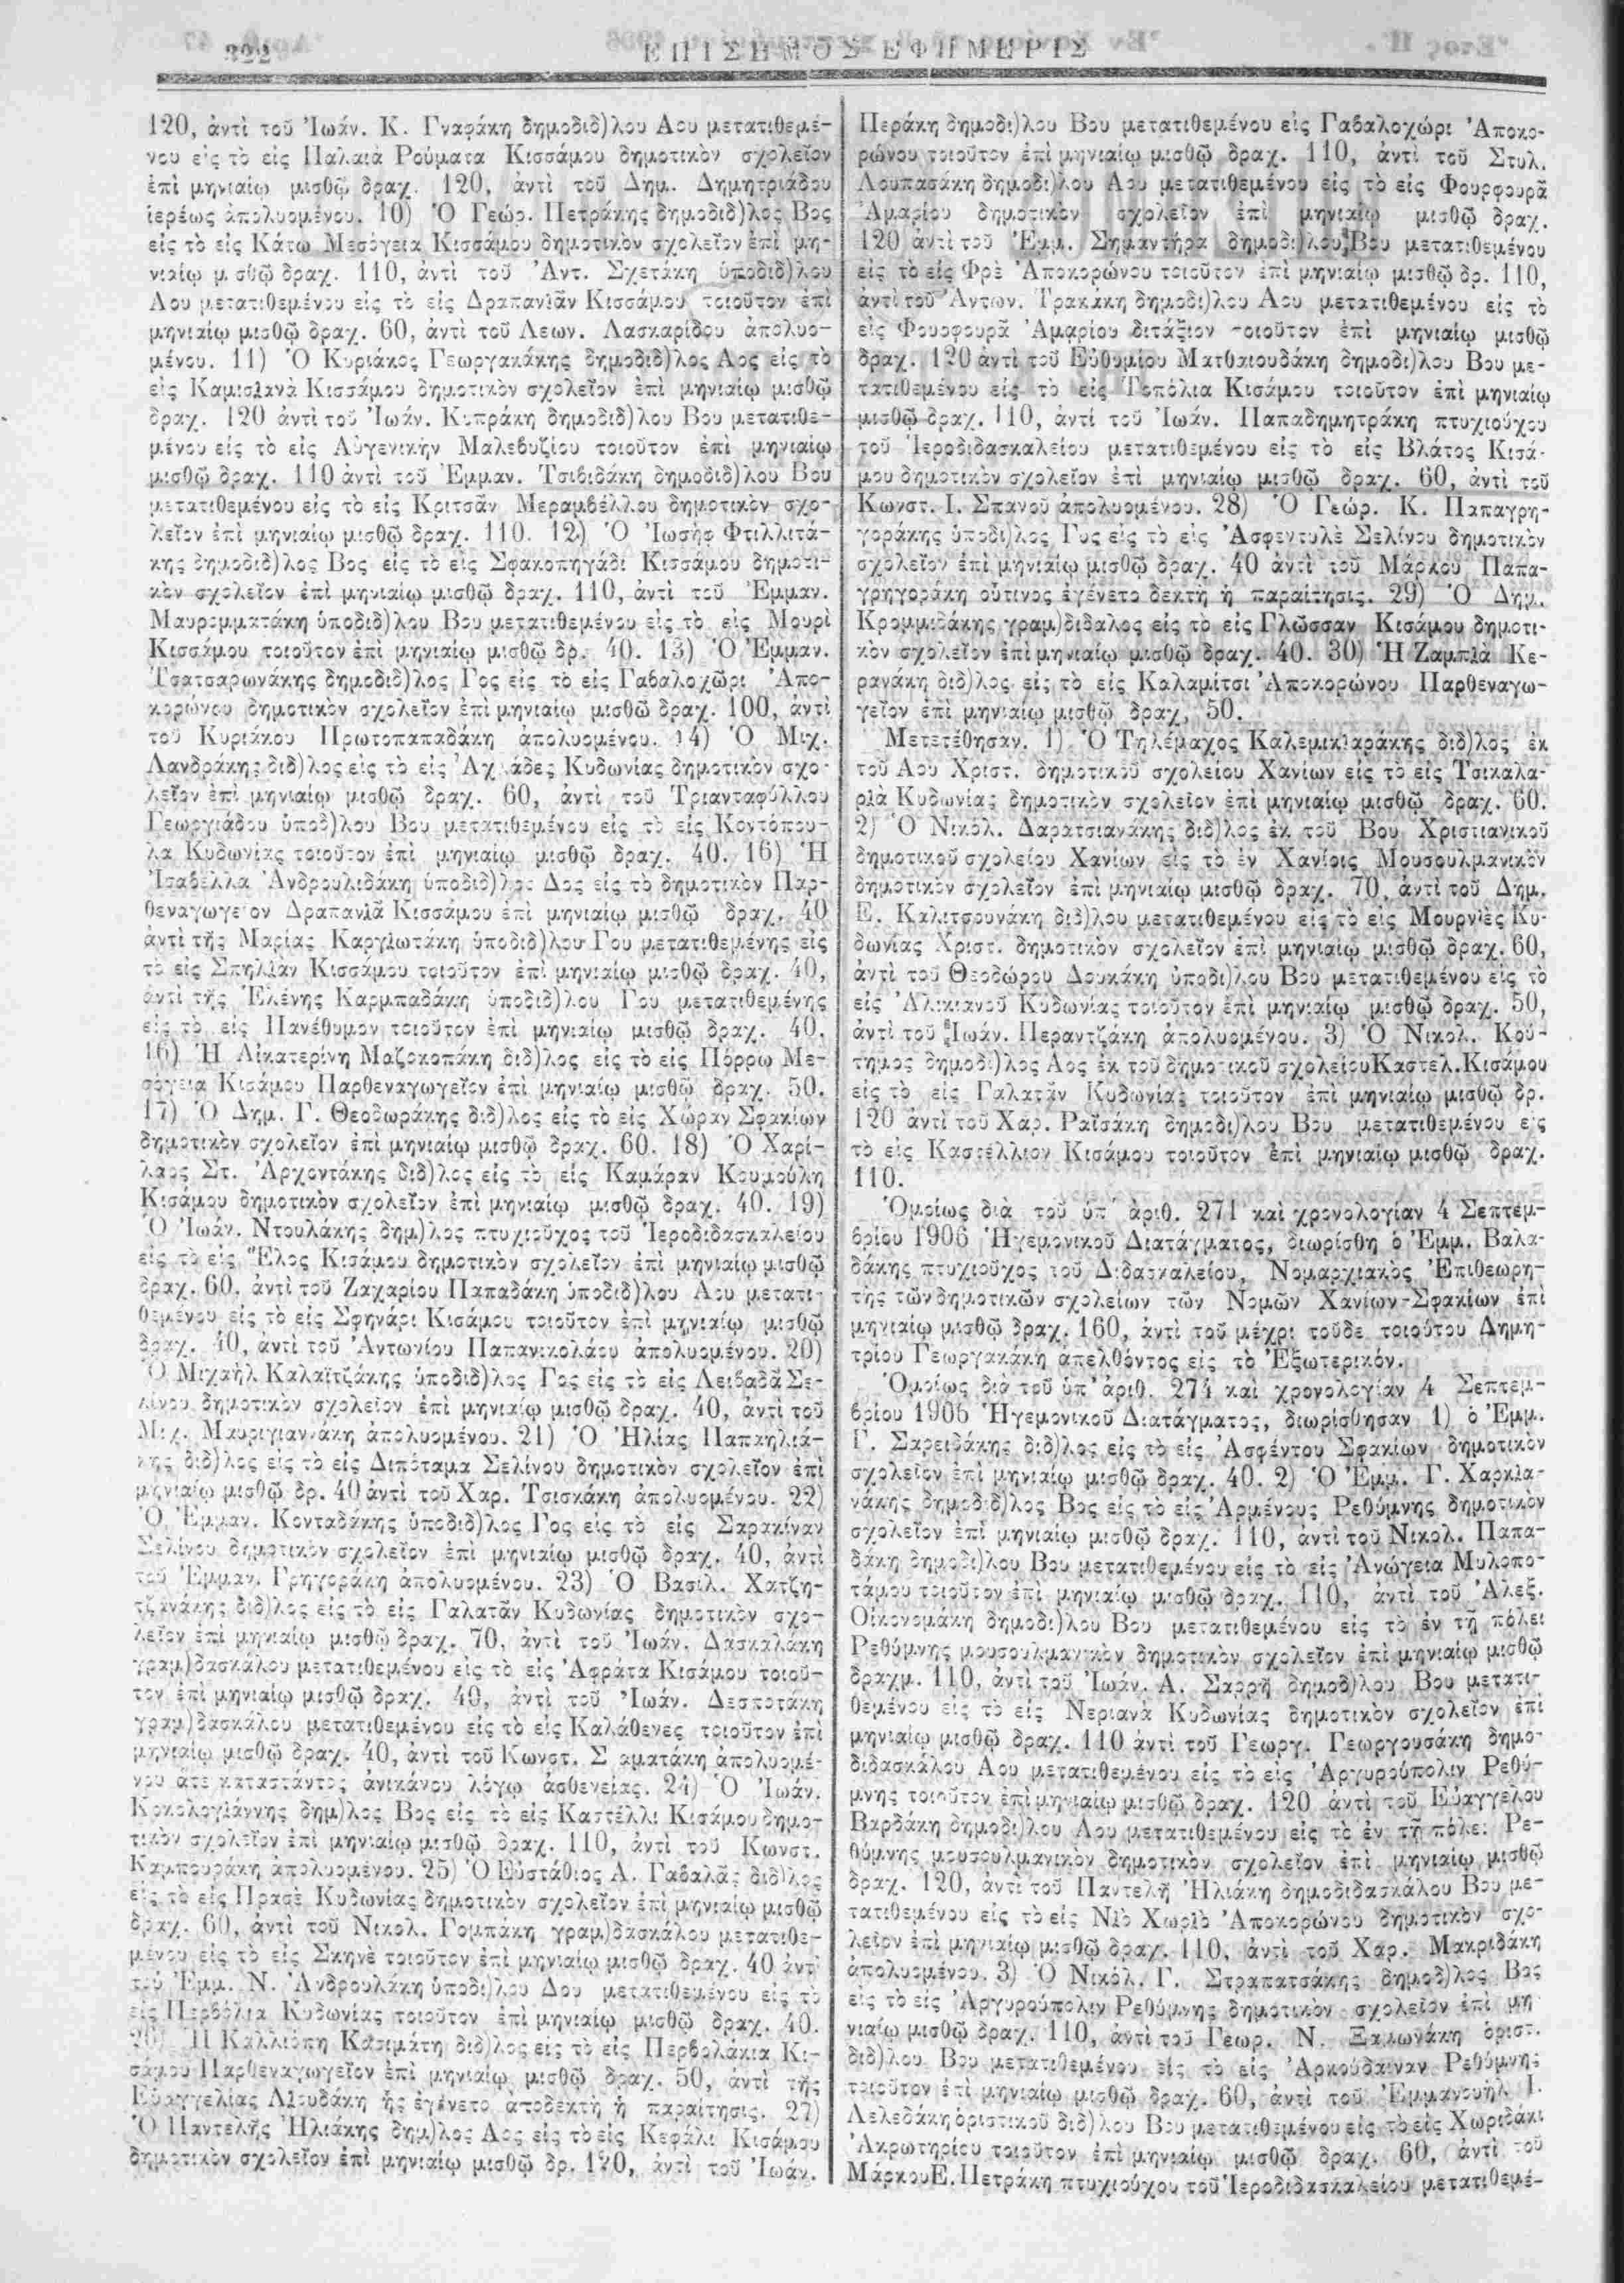 322
ΕΠΙΣΗΜΟΣ ΕΦΗΜΕΡΙΣ
120, ἀντὶ τοῦ Ἰωάν. Κ. Γναφάκη δημοδιδ)λου Αου μετατιθεμέ-
νου εἰς τὸ εἰς Παλαιὰ Ρούματα Κισσάμου δημοτικὸν σχολεῖον
ἐπὶ μηνιαίῳ μισθῷ δραχ. 120, ἀντὶ τοῦ Δημ. Δημητριάδου
ἱερέως ἀπολυομένου. 10) Ὁ Γεώρ. Πετράκης δημοδιδ)λος Βος
εἰς τὸ εἰς Κάτω Μεσόγεια Κισσάμου δημοτικὸν σχολεῖον ἐπὶ μη-
νιαίῳ μισθῷ δραχ. 110, ἀντὶ τοῦ Ἀντ. Σχετάκη ὑποδιδ)λου
Αου μετατιθεμένου εἰς τὸ εἰς Δραπανιᾶν Κισσάμου τοιοῦτον ἐπὶ
μηνιαίῳ μισθῷ δραχ. 60, ἀντὶ τοῦ Λεων. Λασκαρίδου ἀπολυο-
μένου. 11) Ὁ Κυριάκος Γεωργακάκης δημοδιδ)λος Αος εἰς τὸ
εἰς Καμισιανὰ Κισσάμου δημοτικὸν σχολεῖον ἐπὶ μηνιαίῳ μισθῷ
δραχ. 120 ἀντὶ τοῦ Ἰωάν. Κυπράκη δημοδιδ)λου Βου μετατιθε-
μένου εἰς τὸ εἰς Αὐγενικὴν Μαλεβυζίου τοιοῦτον ἐπὶ μηνιαίῳ
μισθῷ δραχ. 110 ἀντὶ τοῦ Ἐμμαν. Τσιβιδάκη δημοδιδ)λου Βου
μετατιθεμένου εἰς τὸ εἰς Κριτσᾶν Μεραμβέλλου δημοτικὸν σχο-
λεῖον ἐπὶ μηνιαίῳ μισθῷ δραχ. 110. 12) Ὁ Ἰωσὴφ Φτιλλιτά-
κης δημοδιδ)λος Βος εἰς τὸ εἰς Σφακοπηγάδι Κισσάμου δημοτι-
κὸν σχολεῖον ἐπὶ μηνιαίῳ μισθῷ δραχ. 110, ἀντὶ τοῦ Ἐμμαν.
Μαυρομματάκη ὑποδιδ)λου Βου μετατιθεμένου εἰς τὸ εἰς Μουρὶ
Κισσάμου τοιοῦτον ἐπὶ μηνιαίῳ μισθῷ δρ. 40. 13) Ὁ Ἐμμαν.
Τσατσαρωνάκης δημοδιδ)λος Γος εἰς τὸ εἰς Γαβαλοχῶρι Ἀπο-
κορώνου δημοτικὸν σχολεῖον ἐπὶ μηνιαίῳ μισθῷ δραχ. 100, ἀντὶ
τοῦ Κυριάκου Πρωτοπαπαδάκη ἀπολυομένου. 14) Ὁ Μιχ.
Λανδράκης διδ)λος εἰς τὸ εἰς Κυδωνίας δημοτικὸν σχο-
λεῖον ἐπὶ μηνιαίῳ μισθῷ δραχ. 60, ἀντὶ τοῦ Τριανταφύλλου
Γεωργιάδου ὑποδ)λου Βου μετατιθεμένου εἰς τὸ εἰς Κοντόπου-
λα Κυδωνίας τοιοῦτον ἐπὶ μηνιαίῳ μισθῷ δραχ. 40. 16) Ἡ
Ἰσαβέλλα Ἀνδρουλιδάκη ὑποδιδ)λος Δος εἰς τὸ δημοτικὸν Παρ-
θεναγωγεῖον Δραπανιᾶ Κισσάμου ἐπὶ μηνιαίῳ μισθῷ δραχ. 40
ἀντὶ τῆς Μαρίας Καργιωτάκη ὑποδιδ)λου Γου μετατιθεμένης εἰς
τὸ εἰς Σπηλιὰν Κισσάμου τοιοῦτον ἐπὶ μηνιαίῳ μισθῷ δραχ. 40,
ἀντὶ τῆς Ἑλένης Καρμπαδάκη ὑποδιδ)λου Γου μετατιθεμένης
εἰς τὸ εἰς Πανέθυμον τοιοῦτον ἐπὶ μηνιαίῳ μισθῷ δραχ. 40.
16) Ἡ Αἰκατερίνη Μαζοκοπάκη διδ)λος εἰς τὸ εἰς Πόρρω Με-
σόγεια Κισάμου Παρθεναγωγεῖον ἐπὶ μηνιαίῳ μισθῷ δραχ. 50.
17) Ὁ Δημ. Γ. Θεοδωράκης διδ)λος εἰς τὸ εἰς Χώραν Σφακίων
δημοτικὸν σχολεῖον ἐπὶ μηνιαίῳ μισθῷ δραχ. 60. 18) Ὁ Χαρί-
λαος Στ. Ἀρχοντάκης διδ)λος εἰς τὸ εἰς Καμάραν Κουμούλη
Κισάμου δημοτικὸν σχολεῖον ἐπὶ μηνιαίῳ μισθῷ δραχ. 40. 19)
Ὁ Ἰωάν. Ντουλάκης δημ)λος πτυχιοῦχος τοῦ Ἱεροδιδασκαλείου
εἰς τὸ εἰς Ἕλος Κισάμου δημοτικὸν σχολεῖον ἐπὶ μηνιαίῳ μισθῷ
δραχ. 60. ἀντὶ τοῦ Ζαχαρίου Παπαδάκη ὑποδιδ)λου Αου μετατι-
θεμένου εἰς τὸ εἰς Σφηνάρι Κισάμου τοιοῦτον ἐπὶ μηνιαίῳ μισθῷ
δραχ. 40, ἀντὶ τοῦ Ἀντωνίου Παπανικολάου ἀπολυομένου. 20)
Ὁ Μιχαὴλ Καλαϊτζάκης ὑποδιδ)λος Γος εἰς τὸ εἰς Λειβαδᾶ Σε-
λίνου δημοτικὸν σχολεῖον ἐπὶ μηνιαίῳ μισθῷ δραχ. 40, ἀντὶ τοῦ
Μιχ. Μαυριγιαννάκη ἀπολυομένου. 21) Ὁ Ἠλίας Παπαηλιά-
κης διδ)λος εἰς τὸ εἰς Διπόταμα Σελίνου δημοτικὸν σχολεῖον ἐπὶ
μηνιαίῳ μισθῷ δρ. 40 ἀντὶ τοῦ Χαρ. Τσισκάκη ἀπολυομένου. 22)
Ὁ Ἐμμαν. Κονταδάκης ὑποδιδ)λος Γος εἰς τὸ εἰς Σαρακίναν
Σελίνου δημοτικὸν σχολεῖον ἐπὶ μηνιαίῳ μισθῷ δραχ. 40, ἀντὶ
τοῦ Ἐμμαν. Γρηγοράκη ἀπολυομένου. 23) Ὁ Βασιλ. Χατζη-
τζανάκης διδ)λος εἰς τὸ εἰς Γαλατᾶν Κυδωνίας δημοτικὸν σχο-
λεῖον ἐπὶ μηνιαίῳ μισθῷ δραχ. 70, ἀντὶ τοῦ Ἰωάν. Δασκαλάκη
γραμ)δασκάλου μετατιθεμένου εἰς τὸ εἰς Ἀφράτα Κισάμου τοιοῦ-
τον ἐπὶ μηνιαίῳ μισθῷ δραχ. 40, ἀντὶ τοῦ Ἰωάν. Δεσποτάκη
γραμ)δασκάλου μετατιθεμένου εἰς τὸ εἰς Καλάθενες τοιοῦτον ἐπὶ
μηνιαίῳ μισθῷ δραχ. 40, ἀντὶ τοῦ Κωνστ. Σ αματάκη ἀπολυομέ-
νου ἅτε καταστάντος ἀνικάνου λόγῳ ἀσθενείας. 24) Ὁ Ἰωάν.
Κοκολογιάννης δημ)λος Βος εἰς τὸ εἰς Καστέλλι Κισάμου δημο-
τικὸν σχολεῖον ἐπὶ μηνιαίῳ μισθῷ δραχ. 110, ἀντὶ τοῦ Κωνστ.
Καμπουράκη ἀπολυομένου. 25) Ὁ Εὐστάθιος Α. Γαβαλᾶς διδ)λος
εἰς τὸ εἰς Πρασὲ Κυδωνίας δημοτικὸν σχολεῖον ἐπὶ μηνιαίῳ μισθῷ
δραχ. 60, ἀντὶ τοῦ Νικολ. Γομπάκη γραμ)δασκάλου μετατιθε-
μένου εἰς τὸ εἰς Σκηνὲ τοιοῦτον ἐπὶ μηνιαίῳ μισθῷ δραχ. 40 ἀντὶ
τοῦ Ἐμμ. Ν. Ἀνδρουλάκη ὑποδι)λου Δου μετατιθεμένου εἰς τὸ
εἰς Περβόλια Κυδωνίας τοιοῦτον ἐπὶ μηνιαίῳ μισθῷ δραχ. 40.
26) Ἡ Καλλιόπη Κασιμάτη διδ)λος εἰς τὸ εἰς Περβολάκια Κι-
σάμου Παρθεναγωγεῖον ἐπὶ μηνιαίῳ μισθῷ δραχ. 50, ἀντὶ τῆς
Εὐαγγελίας Λιουδάκη ἧς ἐγένετο ἀποδεκτὴ ἡ παραίτησις. 27)
Ὁ Παντελῆς Ἠλιάκης δημ)λος Αος εἰς τὸ εἰς Κεφάλι Κισάμου
δημοτικὸν σχολεῖον ἐπὶ μηνιαίῳ μισθῷ δρ. 120, ἀντὶ τοῦ Ἰωάν.
Περάκη δημοδι)λου Βου μετατιθεμένου εἰς Γαβαλοχώρι Ἀποκο-
ρώνου τοιοῦτον ἐπὶ μηνιαίῳ μισθῷ δραχ. 110, ἀντὶ τοῦ Στυλ.
Λουπασάκη δημοδι)λου Αου μετατιθεμένου εἰς τὸ εἰς Φουρφουρᾶ
Ἀμαρίου δημοτικὸν σχολεῖον ἐπὶ μηνιαίῳ μισθῷ δραχ.
120 ἀντὶ τοῦ Ἐμμ. Σημαντήρα δημοδι)λου Βου μετατιθεμένου
εἰς τὸ εἰς Φρὲ Ἀποκορώνου τοιοῦτον ἐπὶ μηνιαίῳ μισθῷ δρ. 110,
ἀντὶ τοῦ Ἀντων. Τρακάκη δημοδι)λου Αου μετατιθεμένου εἰς τὸ
εἰς Φουρφουρᾶ Ἀμαρίου διτάξιον τοιοῦτον ἐπὶ μηνιαίῳ μισθῷ
δραχ. 120 ἀντὶ τοῦ Εὐθυμίου Ματθαιουδάκη δημοδι)λου Βου με-
τατιθεμένου εἰς τὸ εἰς Τοπόλια Κισάμου τοιοῦτον ἐπὶ μηνιαίῳ
μισθῷ δραχ. 110, ἀντὶ τοῦ Ἰωάν. Παπαδημητράκη πτυχιούχου
τοῦ Ἱεροδιδασκαλείου μετατιθεμένου εἰς τὸ εἰς Βλάτος Κισά-
μου δημοτικὸν σχολεῖον ἐπὶ μηνιαίῳ μισθῷ δραχ. 60, ἀντὶ τοῦ
Κωνστ. Ι. Σπανοῦ ἀπολυομένου. 28) Ὁ Γεώρ. Κ. Παπαγρη-
γοράκης ὑποδι)λος Γος εἰς τὸ εἰς Ἀσφεντυλὲ Σελίνου δημοτικὸν
σχολεῖον ἐπὶ μηνιαίῳ μισθῷ δραχ. 40 ἀντὶ τοῦ Μάρκου Παπα-
γρηγοράκη οὗτινος ἐγένετο δεκτὴ ἡ παραίτησις. 29) Ὁ Δημ.
Κρομμιδάκης γραμ)δίδαλος εἰς τὸ εἰς Γλῶσσαν Κισάμου δημοτι-
κὸν σχολεῖον ἐπὶ μηνιαίῳ μισθῷ δραχ. 40. 30) Ἡ Ζαμπιὰ Κε-
ρανάκη διδ)λος εἰς τὸ εἰς Καλαμίτσι Ἀποκορώνου Παρθεναγω-
γεῖον ἐπὶ μηνιαίῳ μισθῷ δραχ, 50.
Μετετέθησαν. 1) Ὁ Τηλέμαχος Καλεμικιαράκης διδ)λος ἐκ
τοῦ Αου Χριστ. δημοτικοῦ σχολείου Χανίων εἰς τὸ εἰς Τσικαλα-
ριὰ Κυδωνίας δημοτικὸν σχολεῖον ἐπὶ μηνιαίῳ μισθῷ δραχ. 60.
2) Ὁ Νικόλ. Δαρατσιανάκης διδ)λος ἐκ τοῦ Βου Χριστιανικοῦ
δημοτικοῦ σχολείου Χανίων εἰς τὸ ἐν Χανίοις Μουσουλμανικὸν
δημοτικὸν σχολεῖον ἐπὶ μηνιαίῳ μισθῷ δραχ. 70, ἀντὶ τοῦ Δημ.
Ε. Καλιτσουνάκη διδ)λου μετατιθεμένου εἰς τὸ εἰς Μουρνιὲς Κυ-
δωνίας Χριστ. δημοτικὸν σχολεῖον ἐπὶ μηνιαίῳ μισθῷ δραχ. 60,
ἀντὶ τοῦ Θεοδώρου Δουκάκη ὑποδι)λου Βου μετατιθεμένου εἰς τὸ
εἰς Ἀλικιανοῦ Κυδωνίας τοιοῦτον ἐπὶ μηνιαίῳ μισθῷ δραχ. 50,
ἀντὶ τοῦ Ἰωάν. Περαντζάκη ἀπολυομένου. 3) Ὁ Νικολ. Κού-
τημος δημοδι)λος Αος ἐκ τοῦ δημοτικοῦ σχολείου Καστελ. Κισάμου
εἰς τὸ εἰς Γαλατᾶν Κυδωνίας τοιοῦτον ἐπὶ μηνιαίῳ μισθῷ δρ.
120 ἀντὶ τοῦ Χαρ. Ραϊσάκη δημοδι)λου Βου μετατιθεμένου εἰς
τὸ εἰς Καστέλλιον Κισάμου τοιοῦτον ἐπὶ μηνιαίῳ μισθῷ δραχ.
110.
Ὁμοίως διὰ τοῦ ὑπ' ἀριθ. 271 καὶ χρονολογίαν 4 Σεπτεμ-
βρίου 1906 Ἡγεμονικοῦ Διατάγματος, διωρίσθη ὁ Ἐμμ. Βαλα-
δάκης πτυχιοῦχος τοῦ Διδασκαλείου, Νομαρχιακὸς Ἐπιθεωρη-
τὴς τῶν δημοτικῶν σχολείων τῶν Νομῶν Χανίων-Σφακίων ἐπὶ
μηνιαίῳ μισθῷ δραχ. 160, ἀντὶ τοῦ μέχρι τοῦδε τοιούτου Δημη-
τρίου Γεωργακάκη ἀπελθόντος εἰς τὸ Ἐξωτερικόν.
Ὁμοίως διὰ τοῦ ὑπ' ἀριθ. 274 καὶ χρονολογίαν 4 Σεπτεμ-
βρίου 1906 Ἡγεμονικοῦ Διατάγματος, διωρίσθησαν 1) ὁ Ἐμμ.
Γ. Σαρειδάκης διδ)λος εἰς τὸ εἰς Ἀσφέντου Σφακίων δημοτικὸν
σχολεῖον ἐπὶ μηνιαίῳ μισθῷ δραχ. 40. 2) Ὁ Ἐμμ. Γ. Χαρκια-
νάκης δημοδιδ)λος Βος εἰς τὸ εἰς Ἀρμένους Ρεθύμνης δημοτικὸν
σχολεῖον ἐπὶ μηνιαίῳ μισθῷ δραχ. 110, ἀντὶ τοῦ Νικολ. Παπα-
δάκη δημοδι)λου Βου μετατιθεμένου εἰς τὸ εἰς Ἀνώγεια Μυλοπο-
τάμου τοιοῦτον ἐπὶ μηνιαίῳ μισθῷ δραχ. 110, ἀντὶ τοῦ Ἀλεξ.
Οἰκονομάκη δημοδι)λου Βου μετατιθεμένου εἰς τὸ ἐν τῇ πόλει
Ρεθύμνης μουσουλμανικὸν δημοτικὸν σχολεῖον ἐπὶ μηνιαίῳ μισθῷ
δραχμ. 110, ἀντὶ τοῦ Ἰωάν. Α. Σαρρῆ δημοδ)λου Βου μετατι-
θεμένου εἰς τὸ εἰς Νεριανὰ Κυδωνίας δημοτικὸν σχολεῖον ἐπὶ
μηνιαίῳ μισθῷ δραχ. 110 ἀντὶ τοῦ Γεωργ. Γεωργουσάκη δημο-
διδασκάλου Αου μετατιθεμένου εἰς τὸ εἰς Ἀργυρούπολιν Ρεθύ-
μνης τοιοῦτον ἐπὶ μηνιαίῳ μισθῷ δραχ. 120 ἀντὶ τοῦ Εὐαγγέλου
Βαρδάκη δημοδι)λου Αου μετατιθεμένου εἰς τὸ ἐν τῇ πόλει Ρε-
θύμνης μουσουλμανικὸν δημοτικὸν σχολεῖον ἐπὶ μηνιαίῳ μισθῷ
δραχ. 120, ἀντὶ τοῦ Παντελῆ Ἠλιάκη δημοδιδασκάλου Βου με-
τατιθεμένου εἰς τὸ εἰς Νιὸ Χωριὸ Ἀποκορώνου δημοτικὸν σχο-
λεῖον ἐπὶ μηνιαίῳ μισθῷ δραχ. 110, ἀντὶ τοῦ Χαρ. Μακριδάκη
ἀπολυομένου. 3) Ὁ Νικόλ. Γ. Στραπατσάκης δημοδ)λος Βος
εἰς τὸ εἰς Ἀργυρούπολιν Ρεθύμνης δημοτικὸν σχολεῖον ἐπὶ μη
νιαίῳ μισθῷ δραχ. 110, ἀντὶ τοῦ Γεωρ. Ν. Ξαμωνάκη ὁριστ.
διδ)λου Βου μετατιθεμένου εἰς τὸ εἰς Ἀρκούδαιναν Ρεθύμνης
τοιοῦτον ἐπὶ μηνιαίῳ μισθῷ δραχ. 60, ἀντὶ τοῦ Ἐμμανουὴλ Ι.
Λελεδάκη ὁριστικοῦ διδ)λου Βου μετατιθεμένου εἰς τὸ εἰς Χωριδάκι
Ἀκρωτηρίου τοιοῦτον ἐπὶ μηνιαίῳ μισθῷ δραχ. 60, ἀντὶ τοῦ
Μάρκου Ε. Πετράκη πτυχιούχου τοῦ Ἱεροδιδασκαλείου μετατιθεμέ-